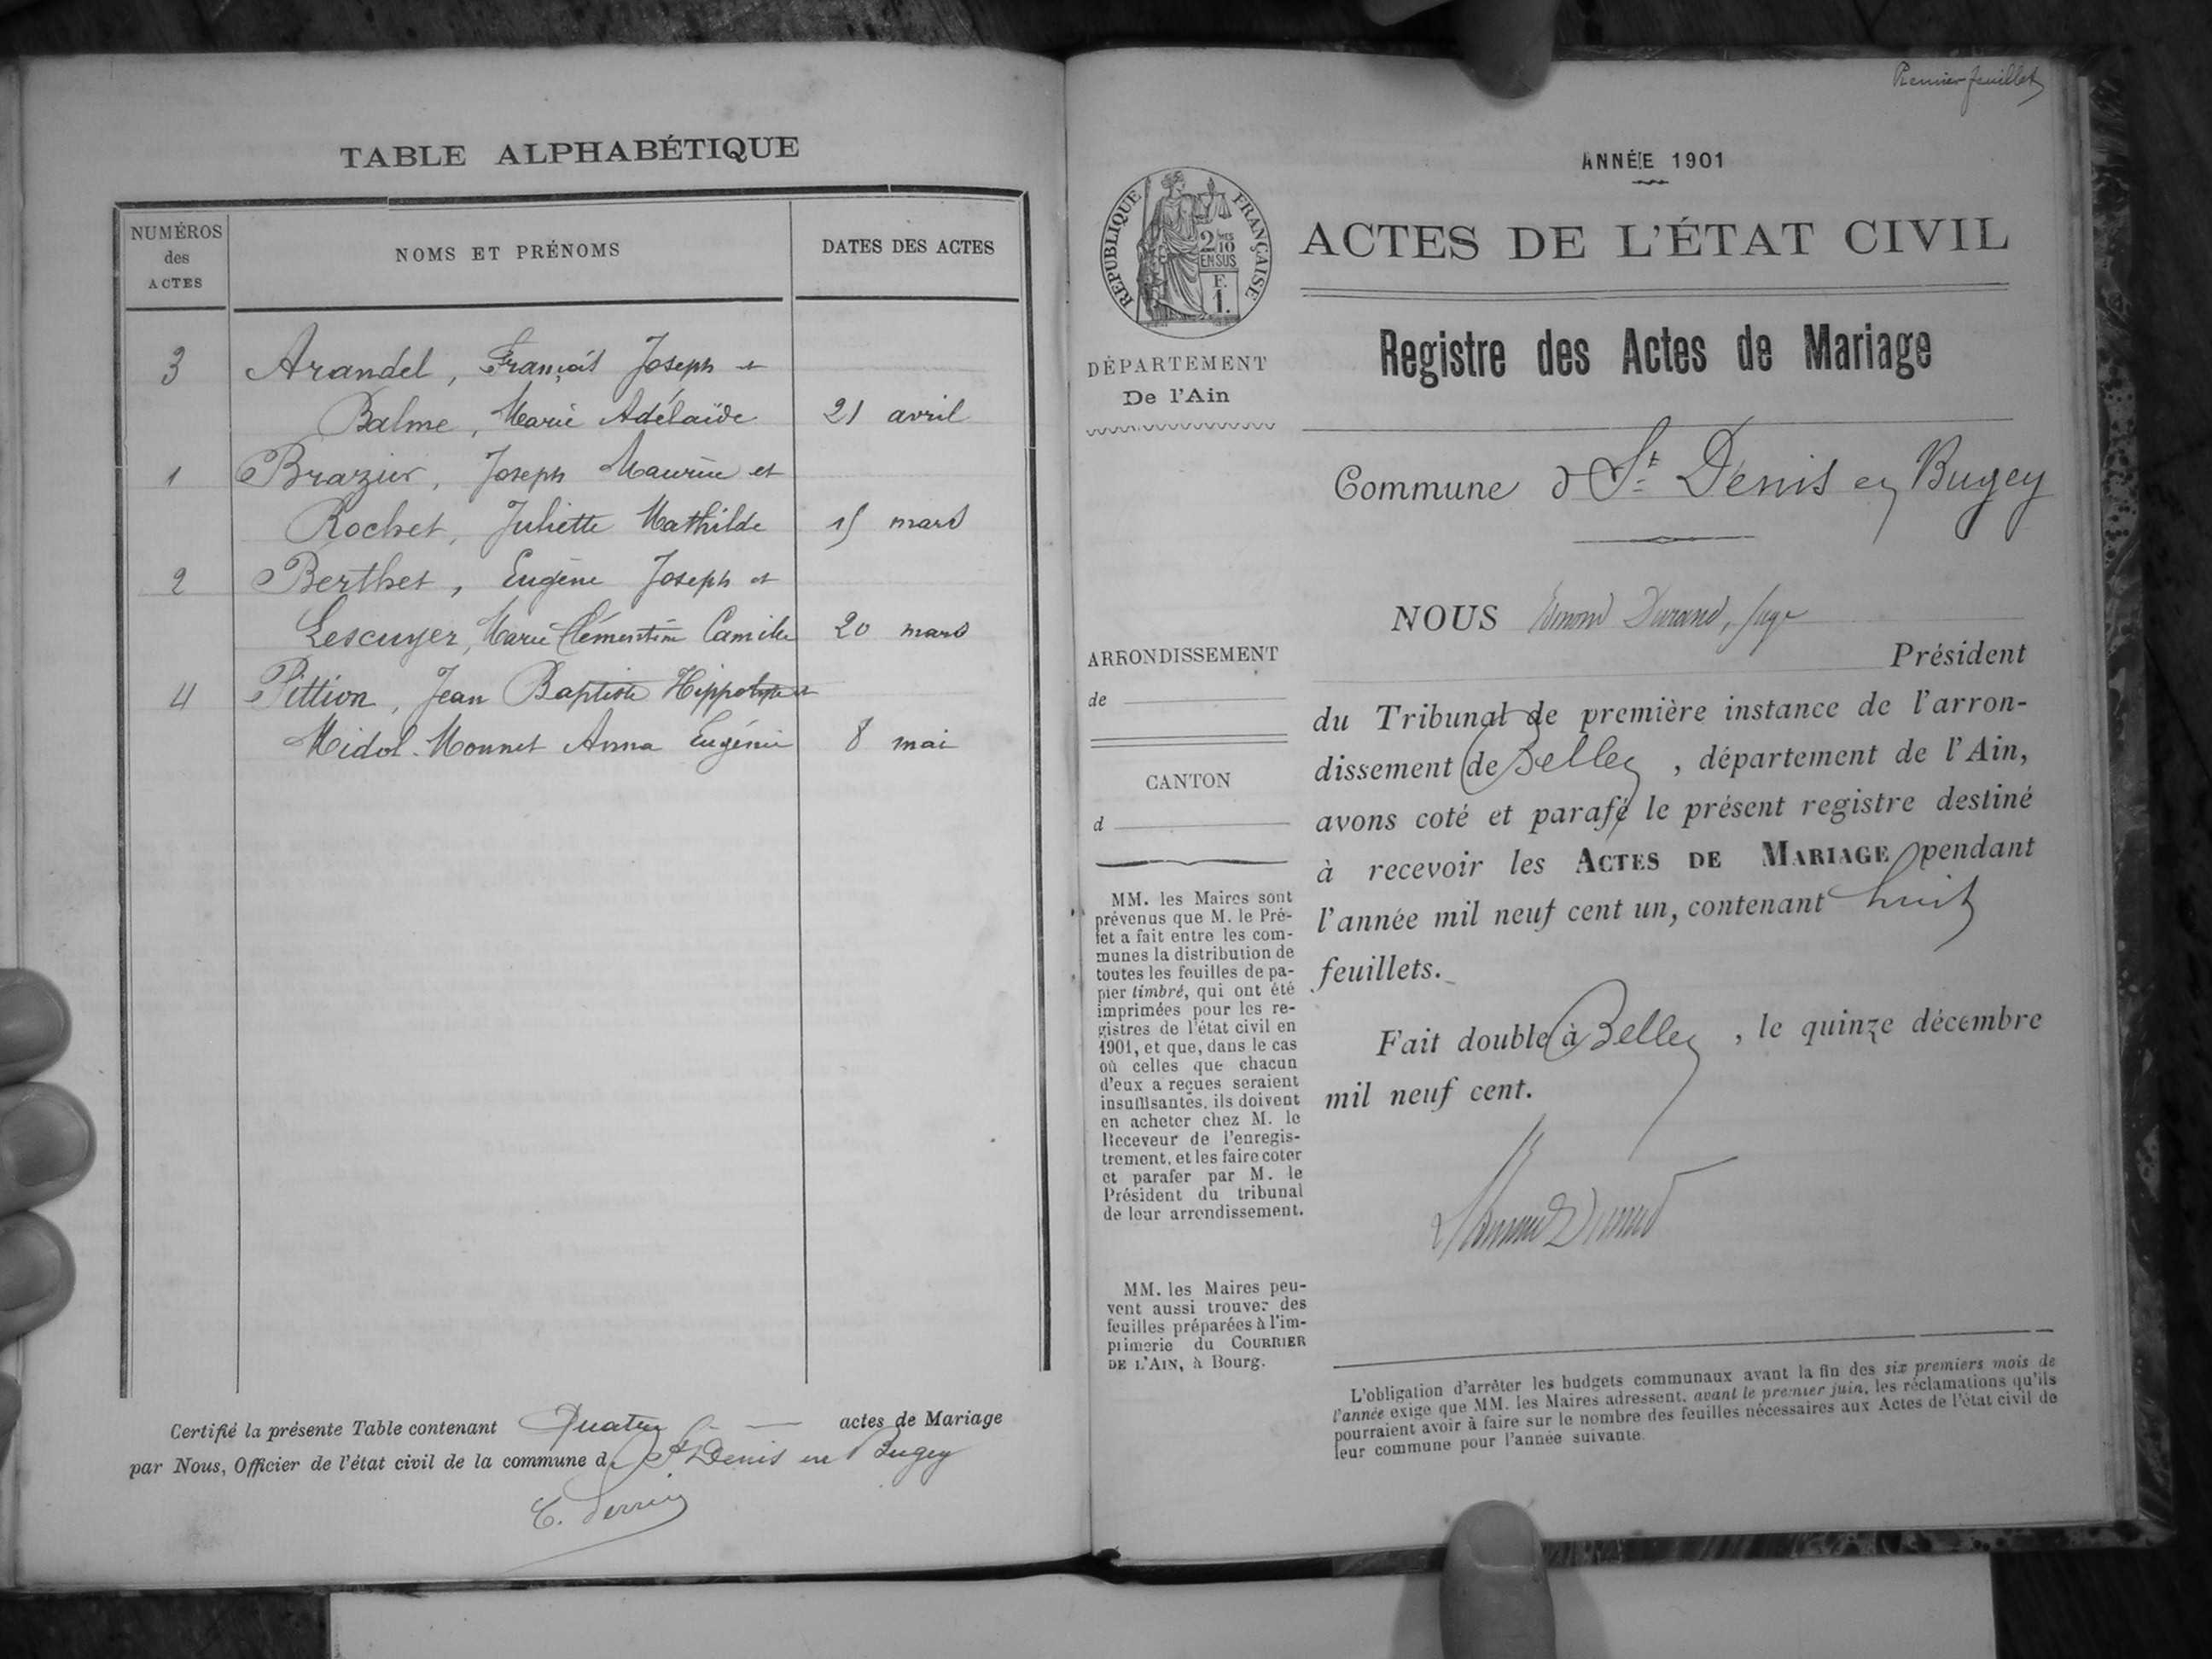 TABLE ALPHABÉTIQUE
NUMÉROS
des
ACTES
NOMS ET PRÉNOMS
DATES DES ACTES
3 Arandel, François Joseph et
Balme, Marie Adélaïde 21 avril
1 Brazier, Joseph Maurice et
Rochet, Juliette Mathilde 15 mars
2 Berthet, Eugène Joseph et
Lescuyer, Marie Clémentine Camille 20 mars
4 Pittion, Jean Baptiste Hippolyte et
Midol-Monnet Anna Eugénie 8 mai
Certifié la présente Table contenant Quatre actes de Mariage
par Nous, Officier de l'état civil de la commune de St Denis en Bugey
Premier feuillet
ANNÉE 1901
RÉPUBLIQUE FRANÇAISE
2 10
EN SUS
F.
1.
ACTES DE L'ÉTAT CIVIL
DÉPARTEMENT
De l'Ain
Registre des Actes de Mariage
Commune d St Denis en Bugey
NOUS Edmond Durand, Juge
Président
ARRONDISSEMENT
de
CANTON
d
du Tribunal de première instance de l'arron-
dissement de Belley, département de l'Ain,
avons coté et parafé le présent registre destiné
à recevoir les ACTES DE MARIAGE pendant
l'année mil neuf cent un, contenant huit
feuillets.
Fait double à Belley, le quinze décembre
mil neuf cent.
MM. les Maires sont
prévenus que M. le Pré-
fet a fait entre les com-
munes la distribution de
toutes les feuilles de pa-
pier timbré, qui ont été
imprimées pour les re-
gistres de l'état civil en
1901, et que, dans le cas
où celles que chacun
d'eux a reçues seraient
insuffisantes, ils doivent
en acheter chez M. le
Receveur de l'enregis-
trement, et les faire coter
et parafer par M. le
Président du tribunal
de leur arrondissement.
MM. les Maires peu-
vent aussi trouver des
feuilles préparées à l'im-
primerie du COURRIER
DE L'AIN, à Bourg.
L'obligation d'arrêter les budgets communaux avant la fin des six premiers mois de
l'année exige que MM. les Maires adressent, avant le premier juin, les réclamations qu'ils
pourraient avoir à faire sur le nombre des feuilles nécessaires aux Actes de l'état civil de
leur commune pour l'année suivante.